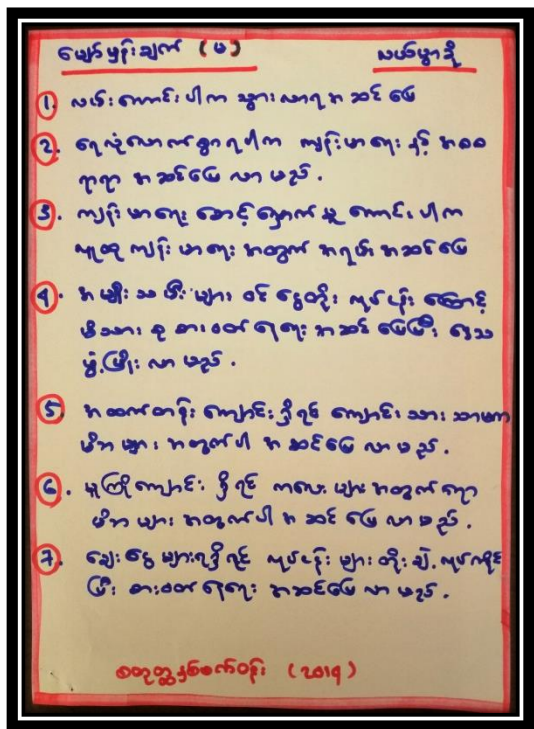 မျှော်မှန်းချက် (မ) မယ်မွာဒို
1. လမ်းကောင်းပါက သွားလာရ အဆင်ပြေ
2. ရေလုံလောက်စွာရပါက ကျန်းမာရေး နှင့် အစစ
ရာရာ အဆင်ပြေ လာမည်.
3. ကျန်းမာရေး စောင့်ရှောက်မှု ကောင်းပါက
လူထု ကျန်းမာရေး အတွက် အရမ်းအဆင်ပြေ
4. အမျိုးသမီး များ ဝင်ငွေတိုး လုပ်ငန်း ကြောင့်
မိသားစု စားဝတ်နေရေး အဆင်ပြေပြီး ဒေသ
ဖွံ့ဖြိုး လာမည်.
5. အထက်တန်း ကျောင်း ရှိရင် ကျောင်းသား သာမက
မိဘများ အတွက်ပါ အဆင်ပြေ လာမည်.
6. မူကြိုကျောင်း ရှိရင် ကလေးများအတွက်ရော
မိဘများ အတွက်ပါ အဆင်ပြေ လာမည်.
7. ချေးငွေ များရရှိရင် လုပ်ငန်း များ တိုးချဲ့ လုပ်ကိုင်
ပြီး စားဝတ်နေရေး အဆင်ပြေ လာမည်.
စတုတ္ထနှစ်ဝက်ဝန်း (2019)